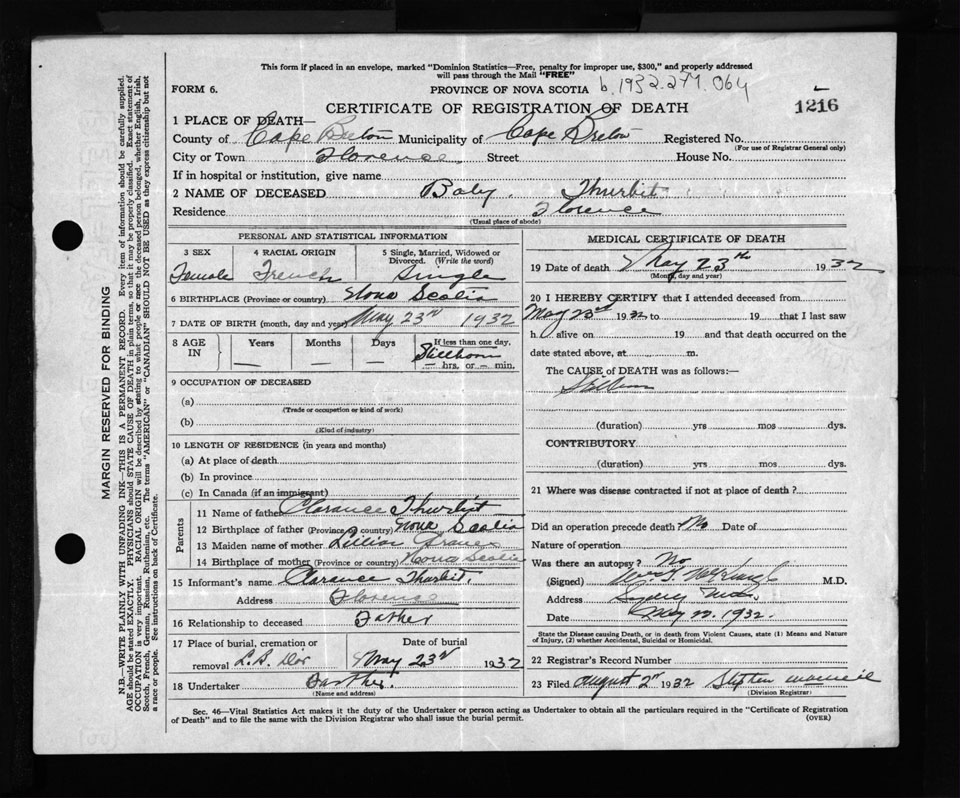 This form if placed in an envelope, marked "Dominion Statistics—Free, penalty for improper use, $300," and properly addressed
will pass through the Mail "FREE"
FORM 6.
PROVINCE OF NOVA SCOTIA b.1932.271.064
CERTIFICATE OF REGISTRATION OF DEATH
1216
1 PLACE OF DEATH—
County of Cape Breton Municipality of Cape Breton Registered No.
(For use of Registrar General only)
City or Town Florence Street House No.
If in hospital or institution, give name
2 NAME OF DECEASED Baby Thurbit
Residence Florence
(Usual place of abode)
PERSONAL AND STATISTICAL INFORMATION
3 SEX 4 RACIAL ORIGIN 5 Single, Married, Widowed or
Divorced. (Write the word)
Female French Single
6 BIRTHPLACE (Province or country) Nova Scotia
7 DATE OF BIRTH (month, day and year) May 23rd 1932
8 AGE IN Years Months Days If less than one day,
Stillborn
— — — — hrs. or — min.
9 OCCUPATION OF DECEASED
(a)
(Trade or occupation or kind of work)
(b)
(Kind of industry)
10 LENGTH OF RESIDENCE (in years and months)
(a) At place of death
(b) In province
(c) In Canada (if an immigrant)
Parents
11 Name of father Clarance Thurbit
12 Birthplace of father (Province or country) Nova Scotia
13 Maiden name of mother Lillian
14 Birthplace of mother (Province or country) Nova Scotia
15 Informant's name Clarance Thurbit.
Address Florence
16 Relationship to deceased Father
17 Place of burial, cremation or Date of burial
removal L.B. Dor May 23rd 1932
18 Undertaker Farther.
(Name and address)
MEDICAL CERTIFICATE OF DEATH
19 Date of death May 23rd 1932
(Month, day and year)
20 I HEREBY CERTIFY that I attended deceased from
May 23rd 1932 to 19 that I last saw
h alive on 19 and that death occurred on the
date stated above, at m.
The CAUSE of DEATH was as follows:—
Stillborn
(duration) yrs mos dys.
CONTRIBUTORY
(duration) yrs mos dys.
21 Where was disease contracted if not at place of death?
Did an operation precede death? No Date of
Nature of operation
Was there an autopsy? No
(Signed) M.D.
Address Sydney Mines.
Date May 1932.
State the Disease causing Death, or in death from Violent Causes, state (1) Means and Nature
of Injury, (2) whether Accidental, Suicidal or Homicidal.
22 Registrar's Record Number
23 Filed August 2nd 1932 Stephen
(Division Registrar)
Sec. 46—Vital Statistics Act makes it the duty of the Undertaker or person acting as Undertaker to obtain all the particulars required in the "Certificate of Registration
of Death" and to file the same with the Division Registrar who shall issue the burial permit.
(OVER)
MARGIN RESERVED FOR BINDING
N.B.—WRITE PLAINLY WITH UNFADING INK—THIS IS A PERMANENT RECORD. Every item of information should be carefully supplied.
AGE should be stated EXACTLY. PHYSICIANS should STATE CAUSE OF DEATH in plain terms, so that it may be properly classified. Exact statement of
OCCUPATION is very important. RACIAL ORIGIN will be described by stating to what people or race the deceased person belonged, whether English, Irish,
Scotch, French, German, Russian, Ruthenian, etc. The terms "AMERICAN" or "CANADIAN" SHOULD NOT BE USED as they express citizenship but not
a race or people. See instructions on back of Certificate.